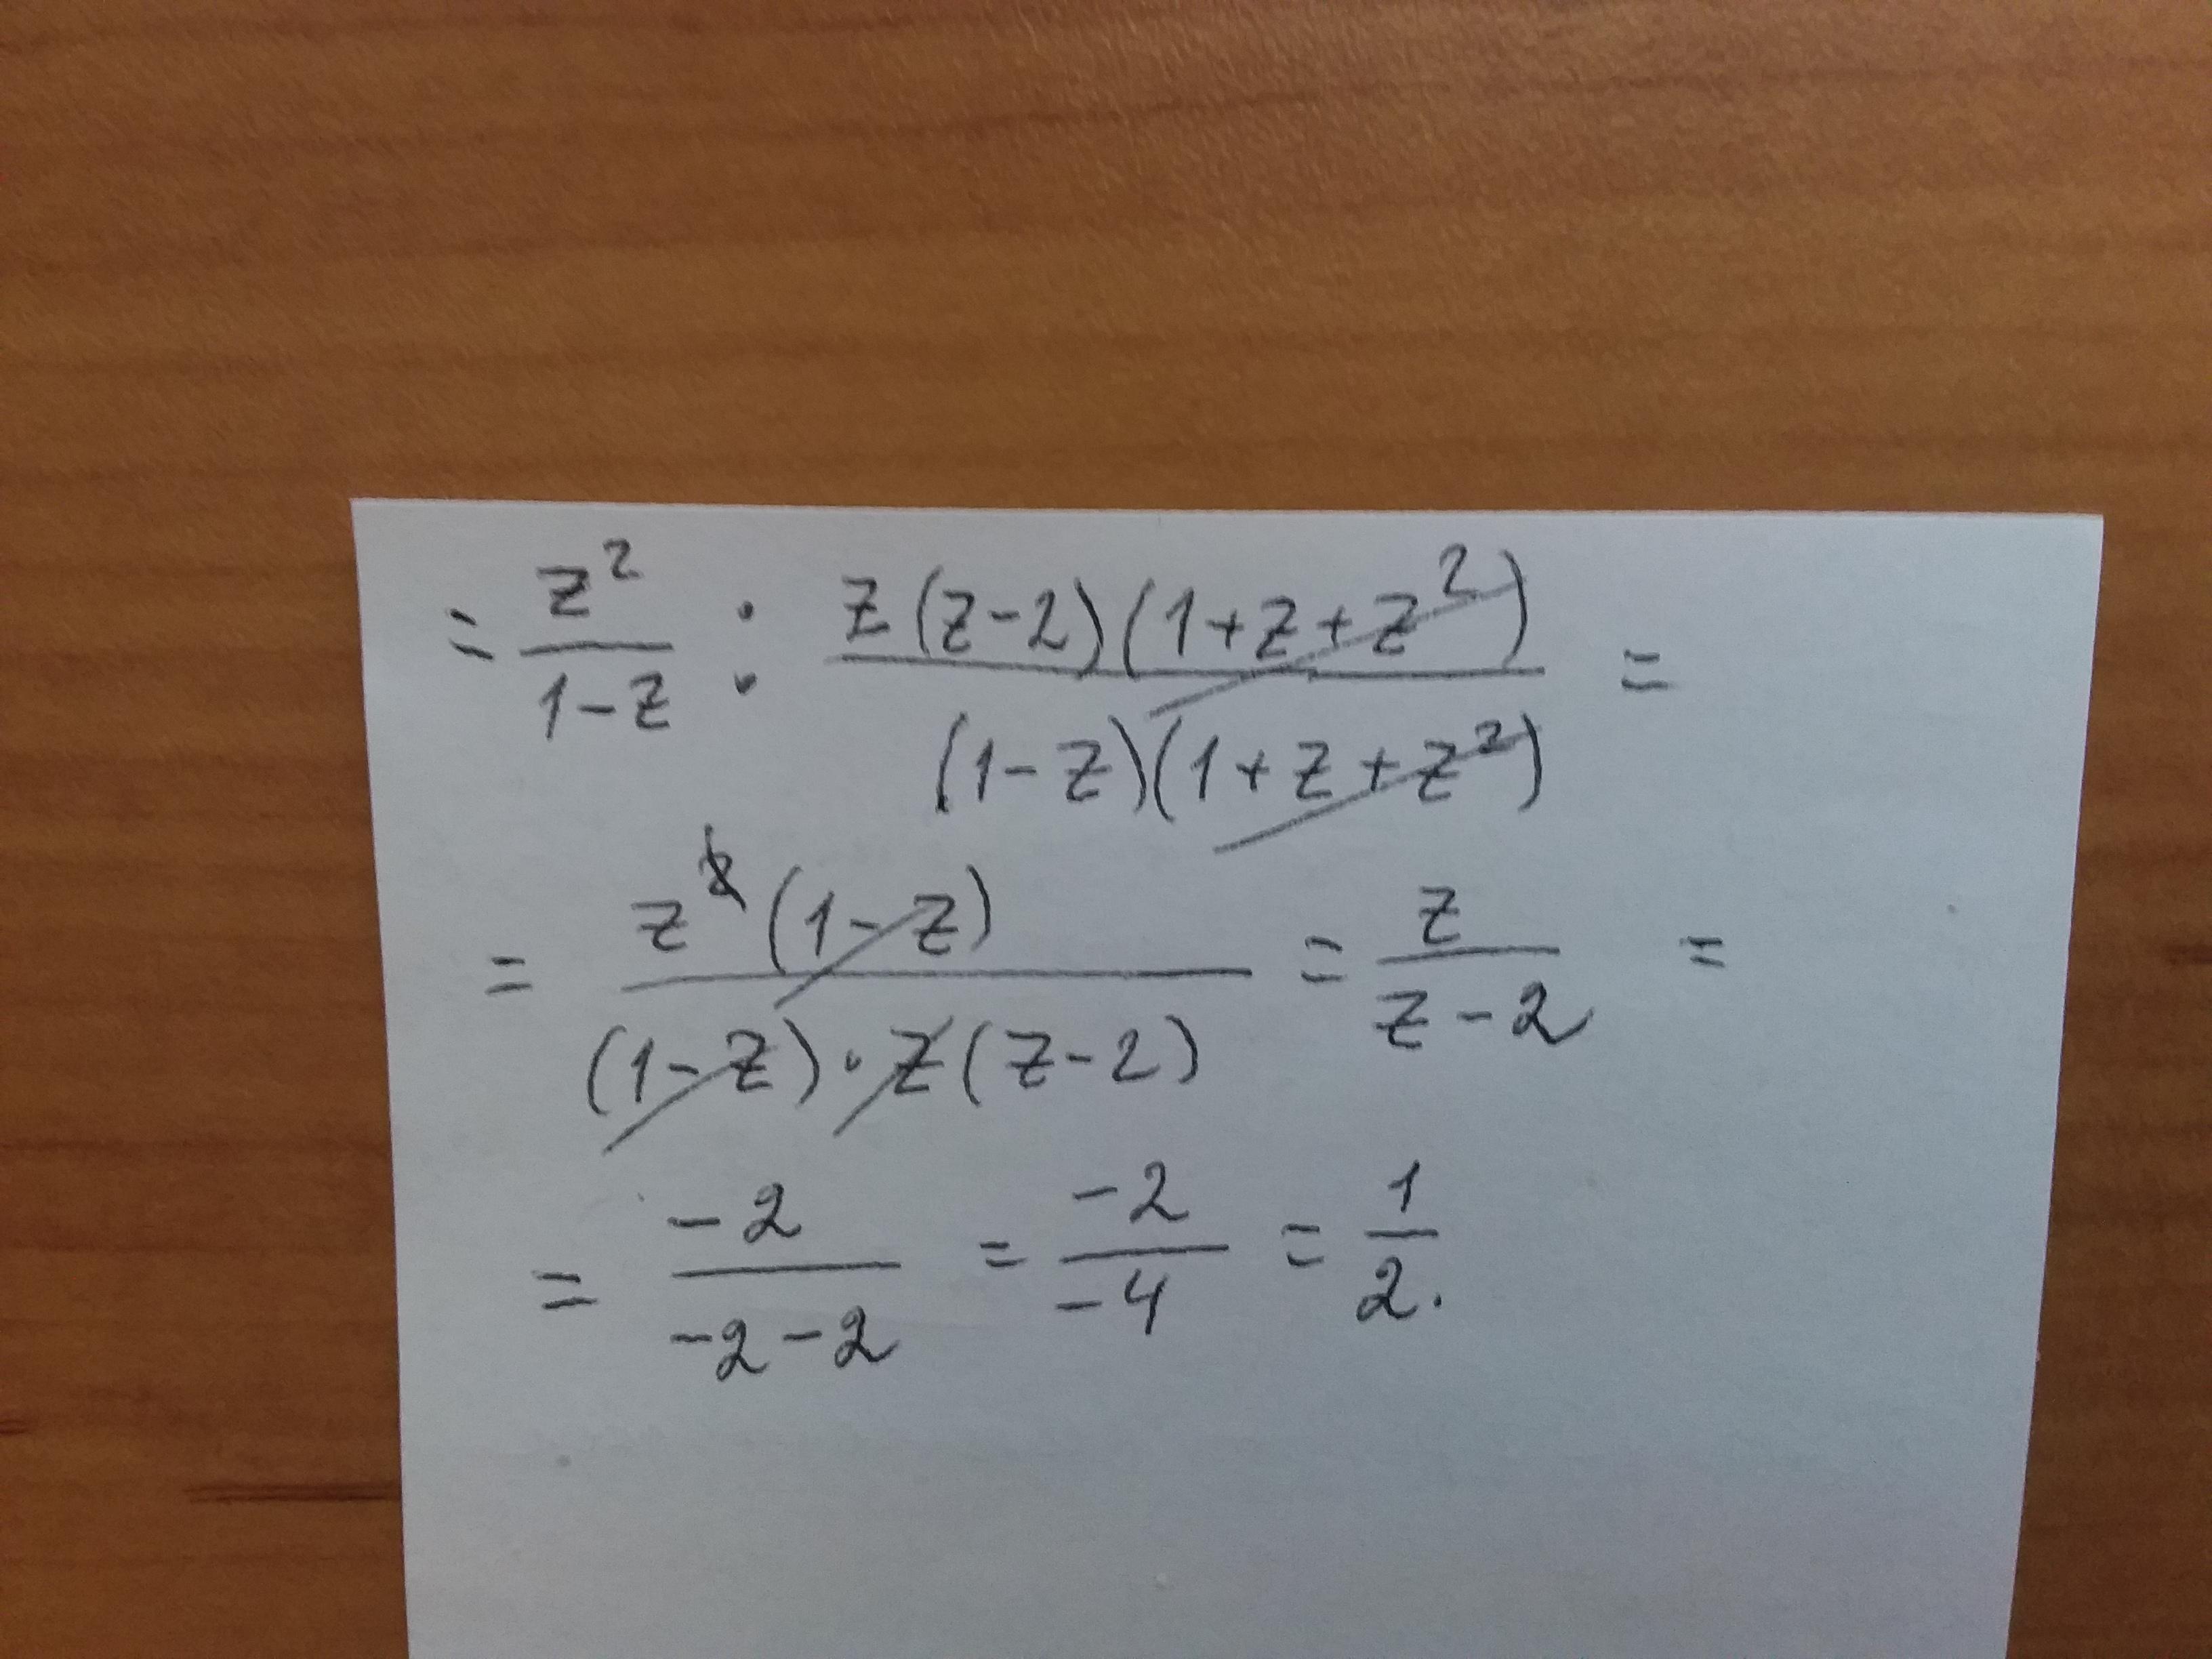 = z²/(1-z) : z(z-2)(1+z+z²)/((1-z)(1+z+z²)) =
= z²(1-z)/((1-z)·z(z-2)) = z/(z-2) =
= -2/(-2-2) = -2/-4 = 1/2.